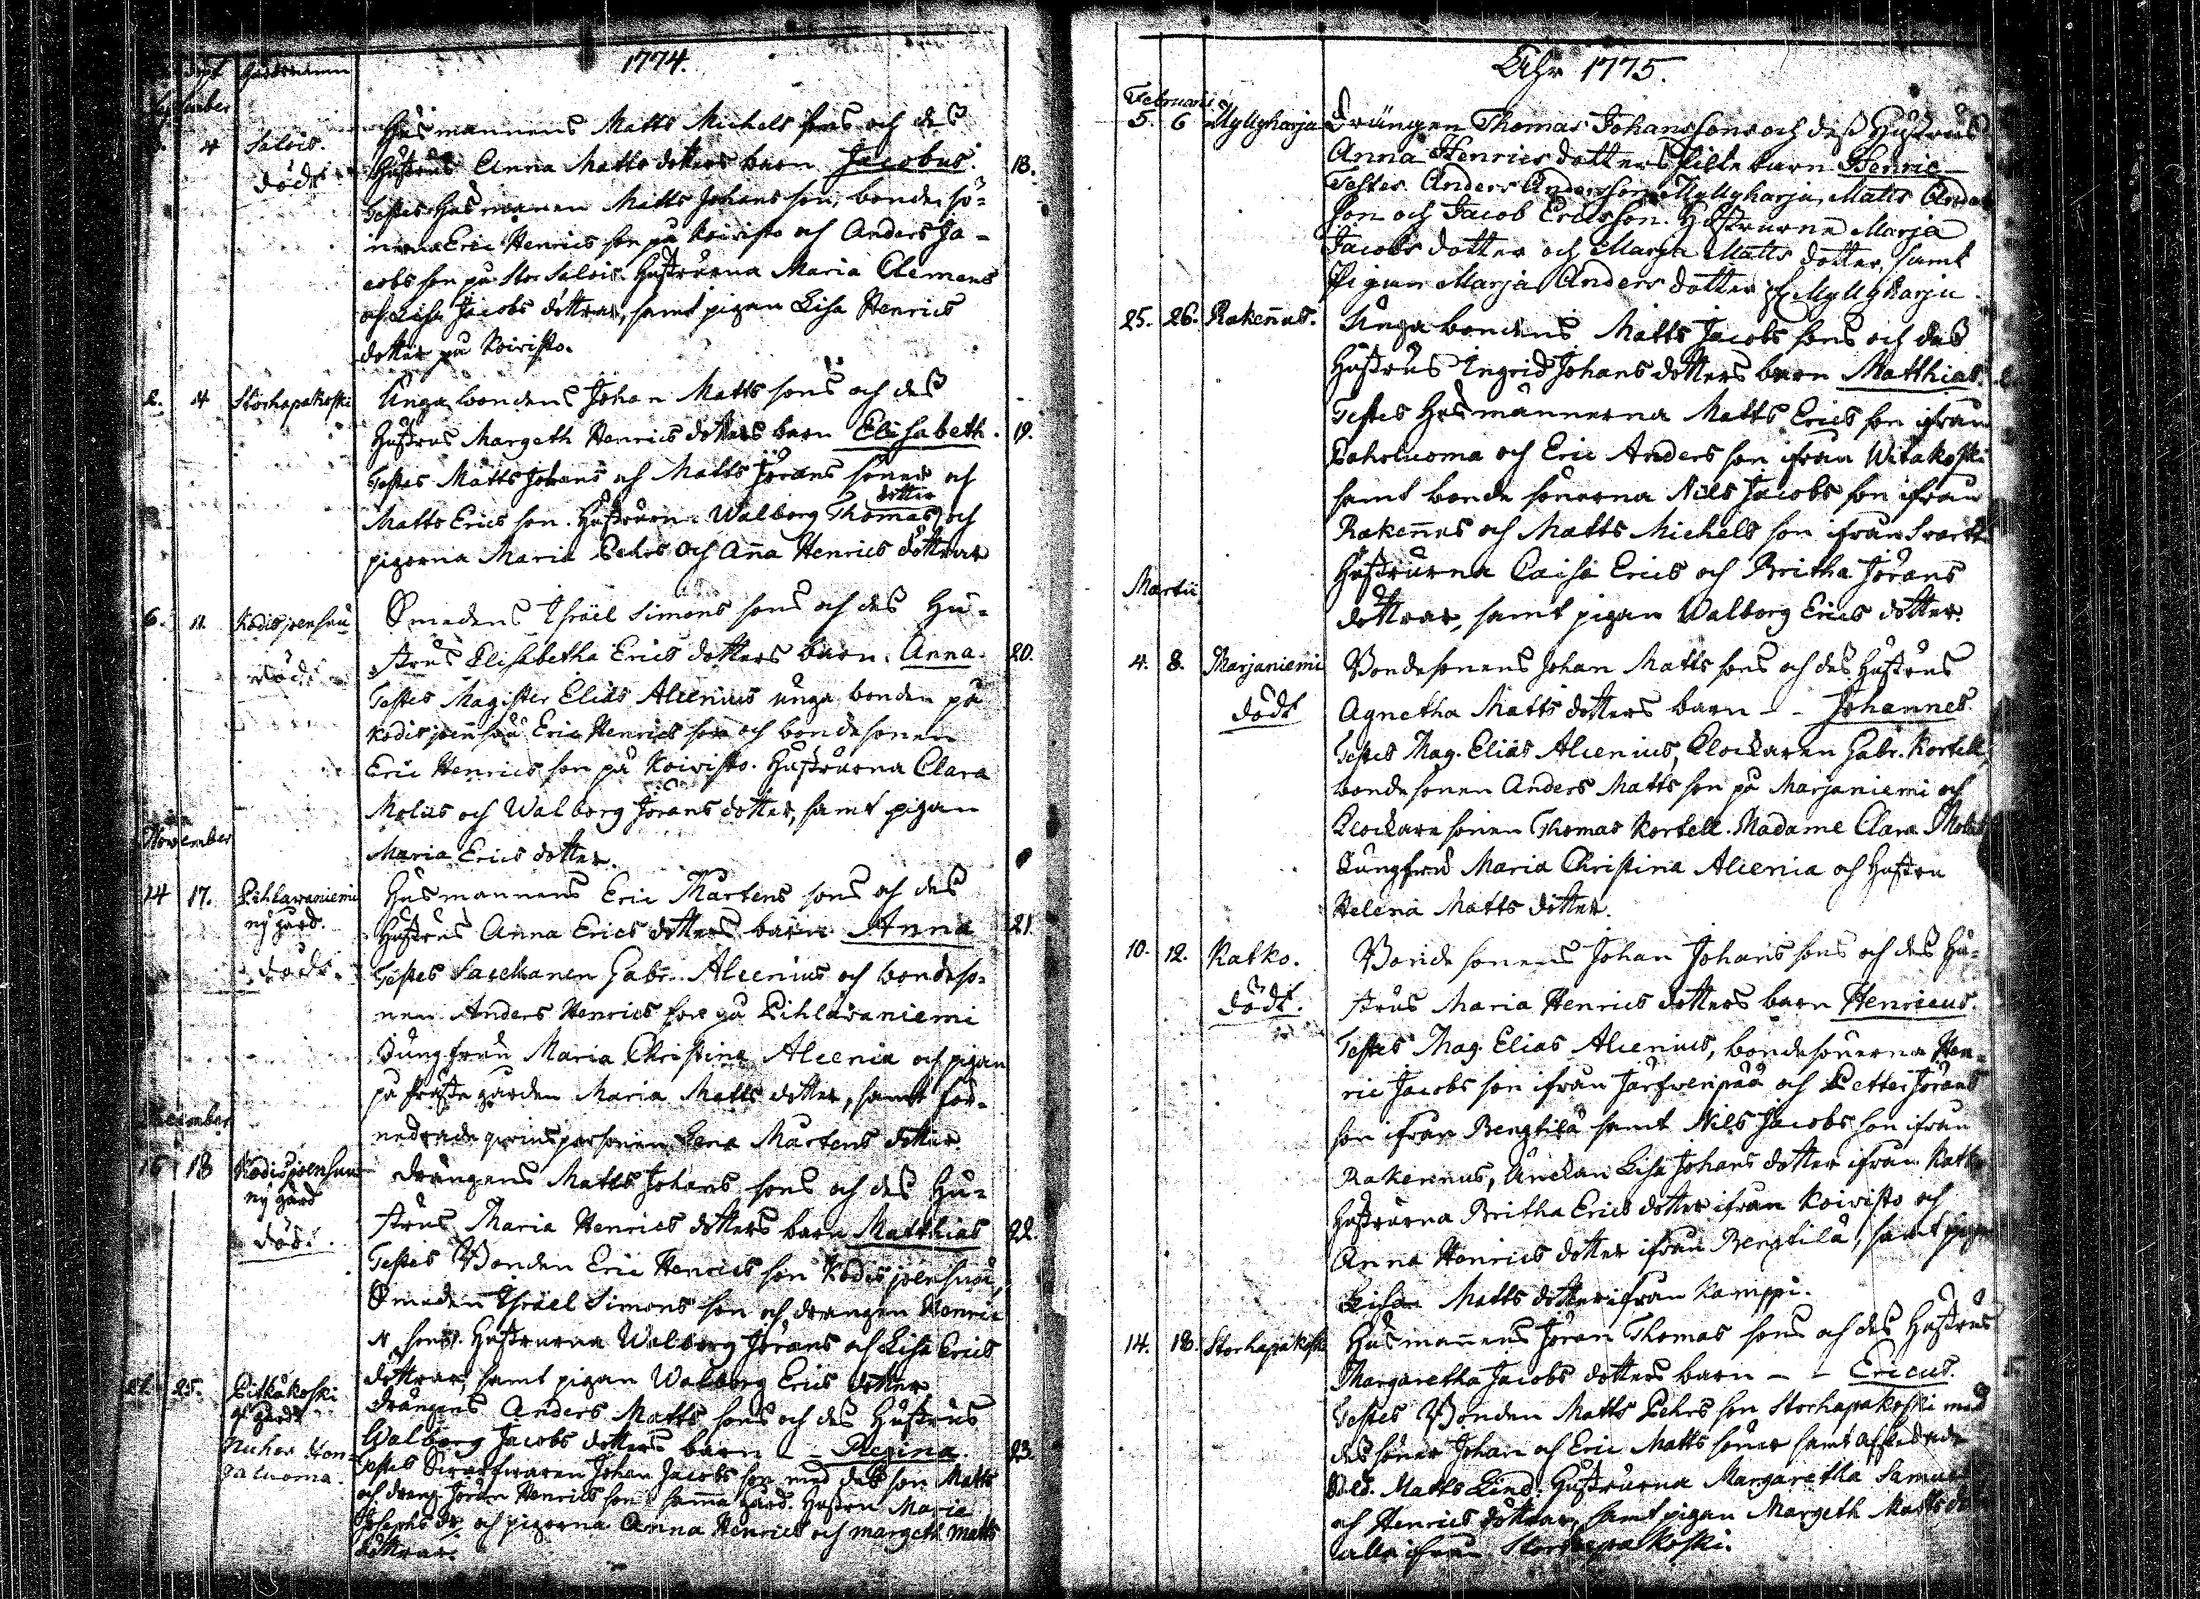 1774.
döpt Gårdsnamn
September
4 Salois. Husmannens Matts Michels sons och des
dödt Hustrus Anna Matts dotters barn Jacobus. 18.
Testes Husmannen Matts Johans son, bonde sö-
nerna Eric Henrics son på Koivisto och Anders Ja-
cobs son på Stor Salois. Hustrurna Maria Clemens
och Lisa Jacobs döttrar, samt pigan Lisa Henrics
dotter på Koivisto.
2. 4 Storhapakoski Unga bondens Johan Matts sons och des
Hustrus Margeth Henrics dotters barn Elisabeth. 19.
Testes Matts Johans och Matts Jörans söner och
Matts Erics son. Hustrun Walborg Thomas dotter och
pigorna Maria Pehrs och Anna Henrics döttrar
6. 11. Kodisjoensuu Smedens Israel Simons sons och des Hu-
dödt strus Elisabetha Erics dotters barn. Anna. 20.
Testes Magister Elias Alcenius unga bonden på
Kodisjoensuu Eric Henrics son och bondesonen
Eric Henrics son på Koivisto. Hustrurna Clara
Moliis och Walborg Jörans dotter, samt pigan
Maria Erics dotter.
November
14 17. Pihlavaniemi Husmannens Eric Mårtens sons och des
ny gård. Hustrus Anna Erics dotters barn Anna 21
dödt. Testes Sacellanen Gabr. Alcenius och bondeso-
nen Anders Henrics son på Pihlavaniemi
Jungfrun Maria Christina Alcenia och pigan
på Prästegården Maria Matts dotter, samt
Lena Mårtens dotter.
December
16 18 Kodisjoensuu Drängens Matts Johans sons och des Hu-
ny gård strus Maria Henrics dotters barn Matthias 22.
död. Testes Bonden Eric Henrics son Kodisjoensuu,
Smeden Israel Simons son och drängen Henric
N son. Hustrurna Walborg Jörans och Lisa Erics
döttrar, samt pigan Walborg Erics dotter
21. 25. Pitkäkoski Drängens Anders Matts sons och des Hustrus
gård Walborg Jacobs dotters barn - Regina. 23.
Testes Johan Jacobs son med des son Matts
och dräng Jöran Henrics son i samma gård. Hustru Maria
Josephs dr. och pigorna Anna Henrics och Margeth Matts
döttrar.
Åhr 1775.
Februarii
5. 6 Myllyharju Drängen Thomas Johanssons och dess Hustrus
Anna Henrics dotters barn Henric
Testes Anders Andersson Myllyharju, Matts Anders
son och Jacob Ericsson. Hustrurna Marja
Jacobs dotter och Marja Matts dotter, samt
Pigan Marja Anders dotter Myllyharju.
25. 26. Rakennus. Unga bondens Matts Jacobs sons och des
Hustrus Ingrid Johans dotters barn Matthias.
Testes Husmännerna Matts Erics son ifrån
Paholuoma och Eric Anders son ifrån Witakoski
samt bonde sönerna Nils Jacobs son ifrån
Rakennus och Matts Michels son ifrån
Hustrurna Caisa Erics och Britha Jörans
döttrar, samt pigan Walborg Erics dotter.
Martii
4. 8. Marjaniemi Bondesonens Johan Matts sons och des Hustrus
dödt Agnetha Matts dotters barn - - Johannes
Testes Mag. Elias Alcenius, Clockaren Gabr. Kortell,
bondesonen Anders Matts son på Marjaniemi och
Clockare sonen Thomas Kortell. Madame Clara
Jungfru Maria Christina Alcenia och Hustru
Helena Matts dotter.
10. 12. Katko. Bonde sonens Johan Johans sons och des Hu-
dödt. strus Maria Henrics dotters barn Henricus.
Testes Mag. Elias Alcenius, bondesönerna Hen-
ric Jacobs son ifrån Järfwenpää och Petter Jörans
son ifrån Bengtilä samt Nils Jacobs son ifrån
Rakennus, Änckan Lisa Johans dotter ifrån Katko
Hustrurna Britha Erics dotter ifrån Koivisto och
Anna Henrics dotter ifrån Bengtilä, samt pigan
Lisa Matts dotter ifrån Kamppi.
14. 18. Storhapakoski Husmannens Jöran Thomas sons och des Hustrus
Margaretha Jacobs dotters barn - - Ericus.
Testes Bonden Matts Pehrs son Storhapakoski med
des söner Johan och Eric Matts söner samt
Sold. Matts Lind. Hustrurna Margaretha
och Henrics döttrar, samt pigan Margeth Matts
alla ifrån Storhapakoski.